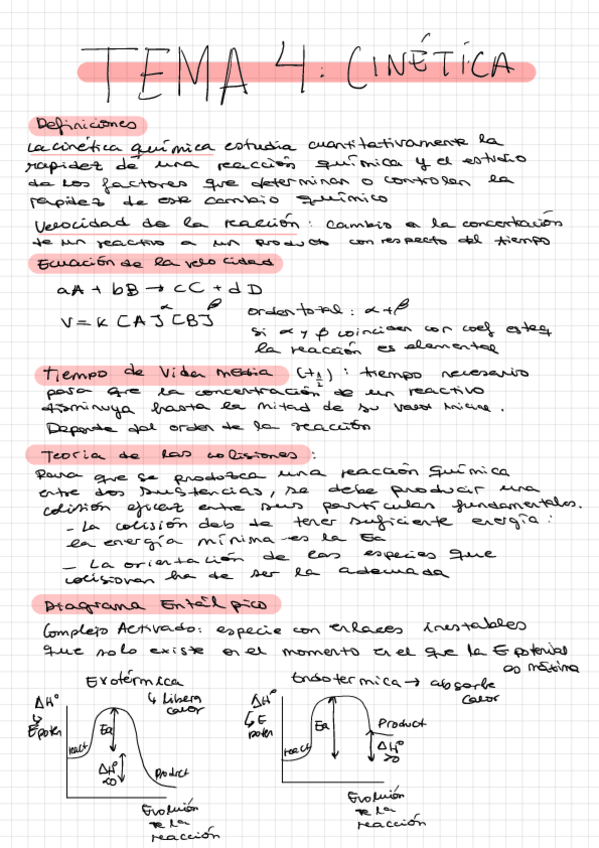 TEMA 4: CINÉTICA
Definiciones
La cinética química estudia cuantitativamente la
rapidez de una reacción química y el estudio
de los factores que determinan o controlan la
rapidez de este cambio químico
Velocidad de la reacción: cambio en la concentración
de un reactivo a un producto con respecto del tiempo
Ecuación de la velocidad
aA + bB → cC + dD
V = K [A]^α [B]^β
orden total: α+β
si α y β coinciden con coef esteq
la reacción es elemental
Tiempo de Vida media (t 1/2): tiempo necesario
para que la concentración de un reactivo
disminuya hasta la mitad de su valor inicial.
Depende del orden de la reacción
Teoría de las colisiones:
Para que se produzca una reacción química
entre dos sustancias, se debe producir una
colisión eficaz entre sus partículas fundamentales.
- La colisión deb de tener suficiente energía:
la energía mínima es la Ea
- La orientación de las especies que
colisionan ha de ser la adecuada
Diagrama Entálpico
Complejo Activado: especie con enlaces inestables
que solo existe en el momento en el que la E potencial
es máxima
Exotérmica
↳ Libera
calor
ΔHº
↳ E
poten
react
Ea
ΔHº
<0
Product
Evolución
de la
reacción
Endotermica → absorbe
calor
ΔHº
↳ E
poten
react
Ea
Product
ΔHº
>0
Evolución
de la
reacción